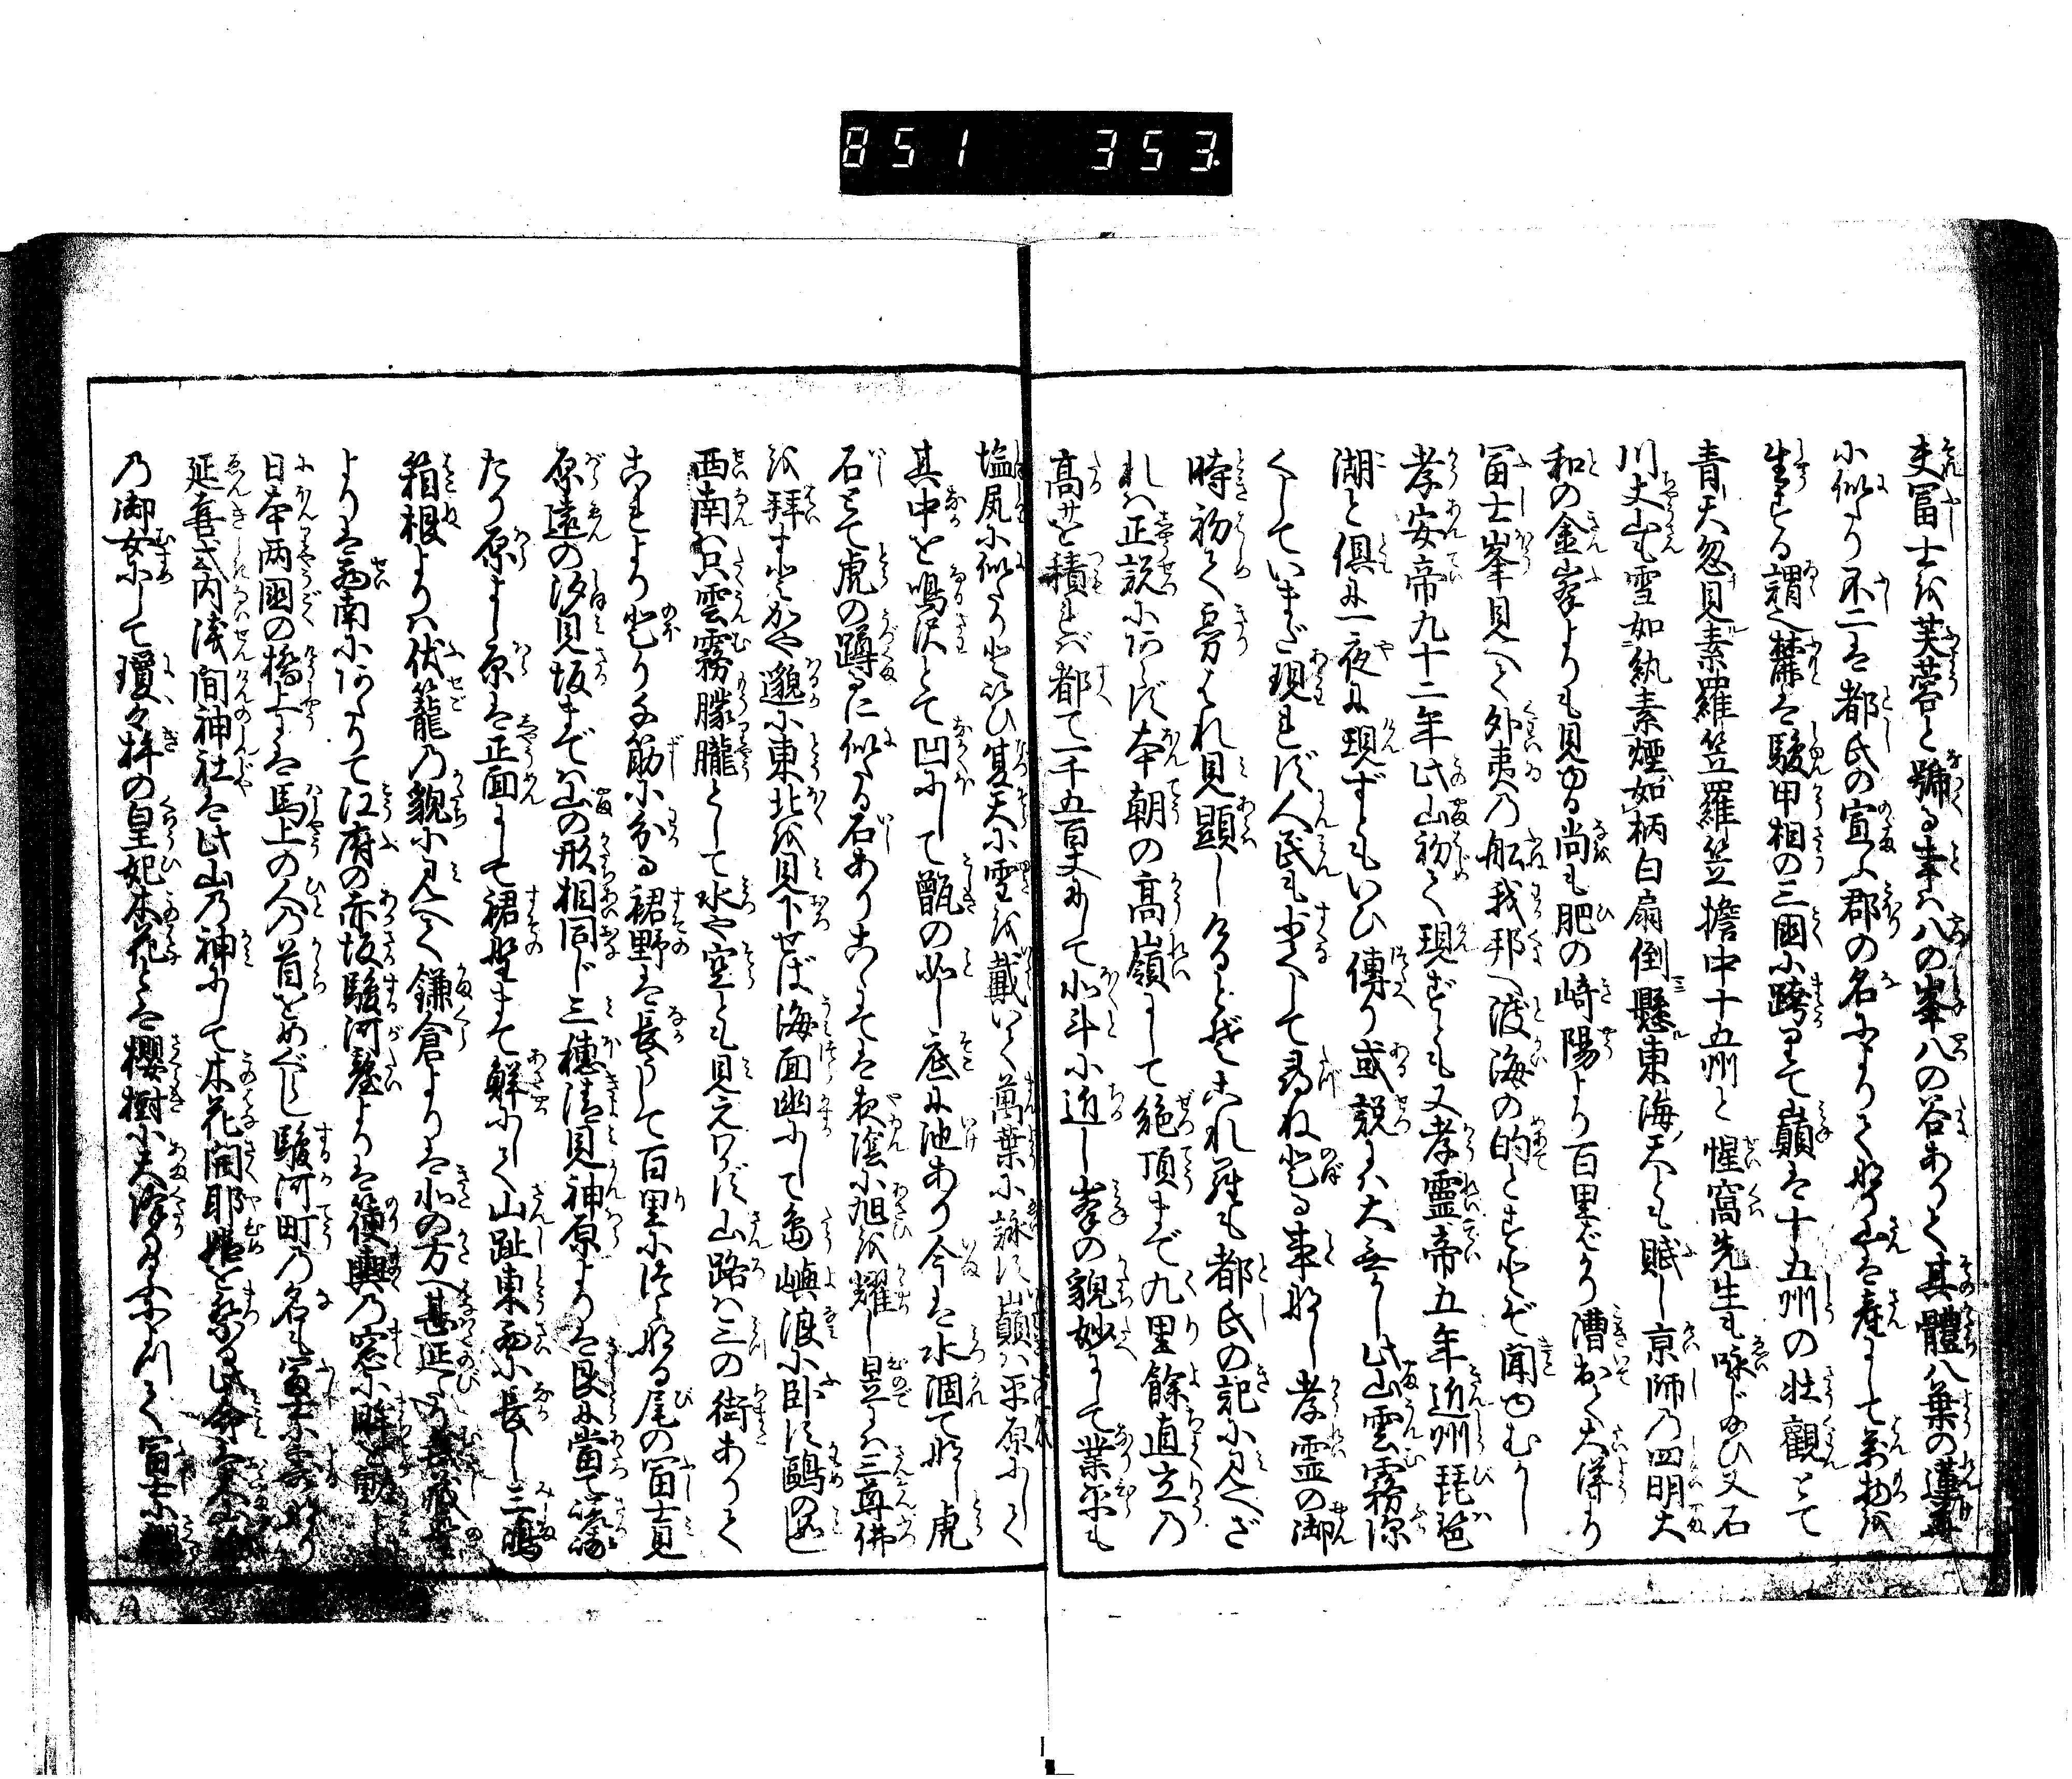 851 353.
夫冨士を芙蓉と號る事ハ八の峯八の谷ありて其體八葉の蓮華
に似たり不二は都氏の宣ふ郡の名によりて也山は産にして万物を
生ずる謂也麓は駿甲相の三國に跨りて巓は十五州の壮觀とて
青天忽見素羅笠羅笠擔中十五州と惺窩先生も咏じ給ひ又石
川丈山も雪如紈素煙如柄白扇倒懸東海天とも賦し京師乃四明大
和の金峯よりも見ゆる尚も肥の崎陽より百里ばかり漕出て大洋より
冨士峯見へて外夷乃舩我邦へ渡海の的とすとぞ聞ゆむかし
孝安帝九十二年此山初て現ずとも又孝靈帝五年近州琵琶
湖と倶に一夜に現ずともいひ傳り或説にハ大古よりし此山雲霧深
くしていまだ現れず人民も少くして尋ね登る事なし孝霊の御
時初て雲はれ見顕しけるとぞこれ等も都氏の記に見へざ
れハ正説にあらず本朝の高嶺にして絶頂まで九里餘直立乃
高サを積れバ都て一千五百丈にして北斗に近し峯の貌妙にして業平も
塩尻に似たりといひ夏天に雪を戴いて萬葉に詠ず巓ハ平原にして
其中を鳴沢とて凹にして甑の如し底に池あり今は水涸て無し虎
石とて虎の蹲るに似る石ありこゝにては夜陰に旭を耀し昼にハ三尊佛
を拝すとかや遥に東北を見下せば海面幽にして島嶼浪に臥す鷗の如し
西南ハ只雲霧朦朧として水や空とも見えわかず山路ハ三の街ありて
これより登り分筋に分る裾野は長うして百里に満なる尾の冨士見
原遠の汐見坂までハ山の形相同じ三穂清見神原よりは艮に當て
たり原よし原は正面にして裾野まて鮮にして山趾東西に長し三嶋
箱根よりハ伏籠乃貌に見へて鎌倉よりは北の方へ甚延たり武蔵野
よりは西南にありて江府の赤坂駿河臺よりは便輿乃窓に眸を動し
日本両國の橋上には馬上の人乃首をめぐらし駿河町乃名も冨士に
延喜式内浅間神社は此山乃神にして木花開耶姫を祭る此命は大山
乃御女にして瓊々杵の皇妃木花とは櫻樹に